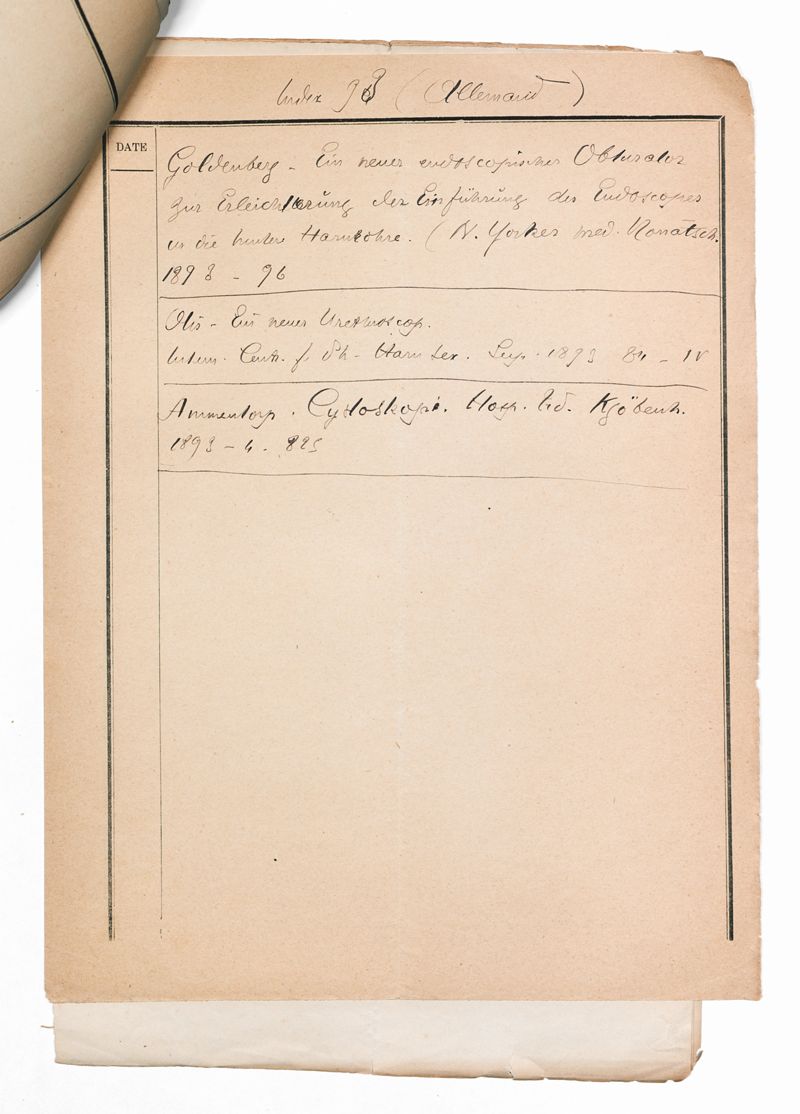 Index 93 (Allemand)
DATE
Goldenberg - Ein neuer endoscopischer Obturator
zur Erleichterung der Einführung des Endoscopes
in die hintere Harnröhre. (N. Yorker med. Monatsch.
1893 - 96
Otis - Ein neues Urethroscop.
Intern. Centr. f. Ph - Harn Sex. Leip. 1893 84 - IV
Ammentorp. Cystoskopi. Hosp. tid. Kjöbenh.
1893 - 4. 825